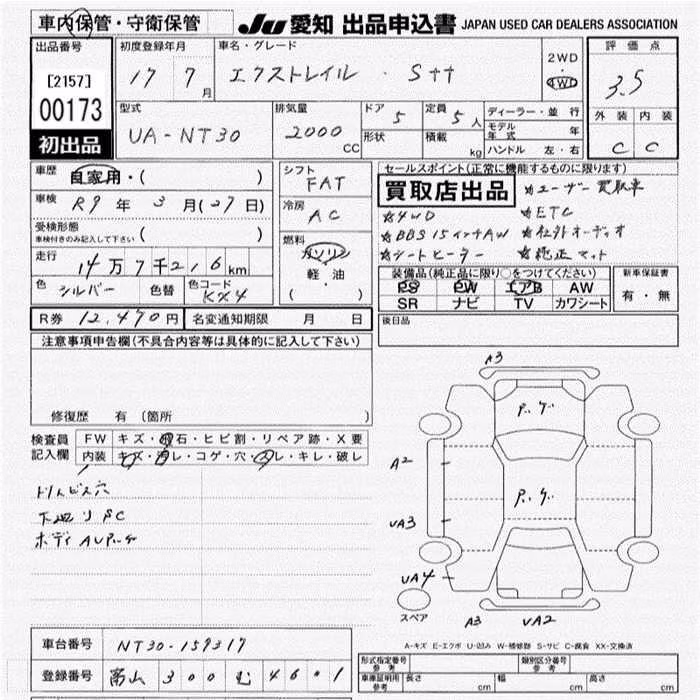 車内保管・守衛保管 JU 愛知 出品申込書 JAPAN USED CAR DEALERS ASSOCIATION
出品番号 初度登録年月 車名・グレード 評価点
[2157] 17 7月 エクストレイル・Stt 2WD 4WD 3.5
00173 型式 排気量 ドア 5 定員 5人 ディーラー・並行 外装 内装
初出品 UA-NT30 2000cc 形状 積載 kg モデル年式 年 ハンドル 左・右 C C
車歴 自家用・( ) シフト FAT セールスポイント(正常に機能するものに限ります)
車検 R9年3月(27日) 冷房 AC 買取店出品 ☆ユーザー買取車
受検形態 車検付きのみ記入して下さい ( ) ☆4WD ☆ETC
燃料 ガソリン 軽油 ( ) ☆BBS15インチAW ☆社外オーディオ
走行 14万7千216km ☆シートヒーター ☆純正マット
色 シルバー 色替 色コード KX4 装備品(純正品に限り○をつけてください) 新車保証書
PS PW エアB AW 有・無
SR ナビ TV カワシート
R券 12,470円 名変通知期限 月 日 後日品
注意事項申告欄(不具合内容等は具体的に記入して下さい)
修復歴 有 (箇所 )
検査員記入欄 FW キズ・飛石・ヒビ割・リペア跡・X要
内装 キズ・汚レ・コゲ・穴・スレ・キレ・破レ
下廻りSC
ボディAUP.ケ
A3
P.ケ
A2
P.ケ
UA3
UA4
スペア A3 UA2
A-キズ E-エクボ U-凹み W-補修跡 S-サビ C-腐食 XX-交換済
車台番号 NT30-159317
型式指定番号 参考 類別区分番号 参考
登録番号 富山 300 む 4601
車庫証明用 参考 長さ cm 幅 cm 高さ cm